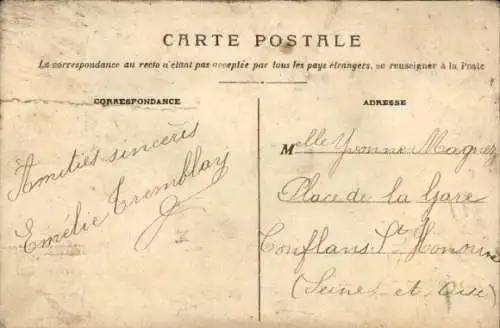 CARTE POSTALE
La correspondance au recto n'étant pas acceptée par tous les pays étrangers, se renseigner à la Poste
CORRESPONDANCE
ADRESSE
Amitiés sincères
Emélie Tremblay
Melle Yvonne Magnez
Place de la Gare
Conflans St Honorine
(Seine et Oise)